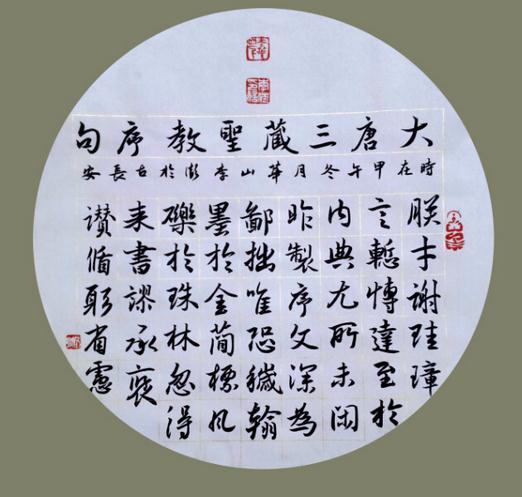 大唐三藏聖教序句
時在甲午冬月華山李澎於古長安
朕才謝珪璋
言慙博達至於
內典尤所未閑
昨製序文深為
鄙拙唯恐穢翰
墨於金簡標瓦
礫於珠林忽得
来書謬承褒
讚循躬省慮